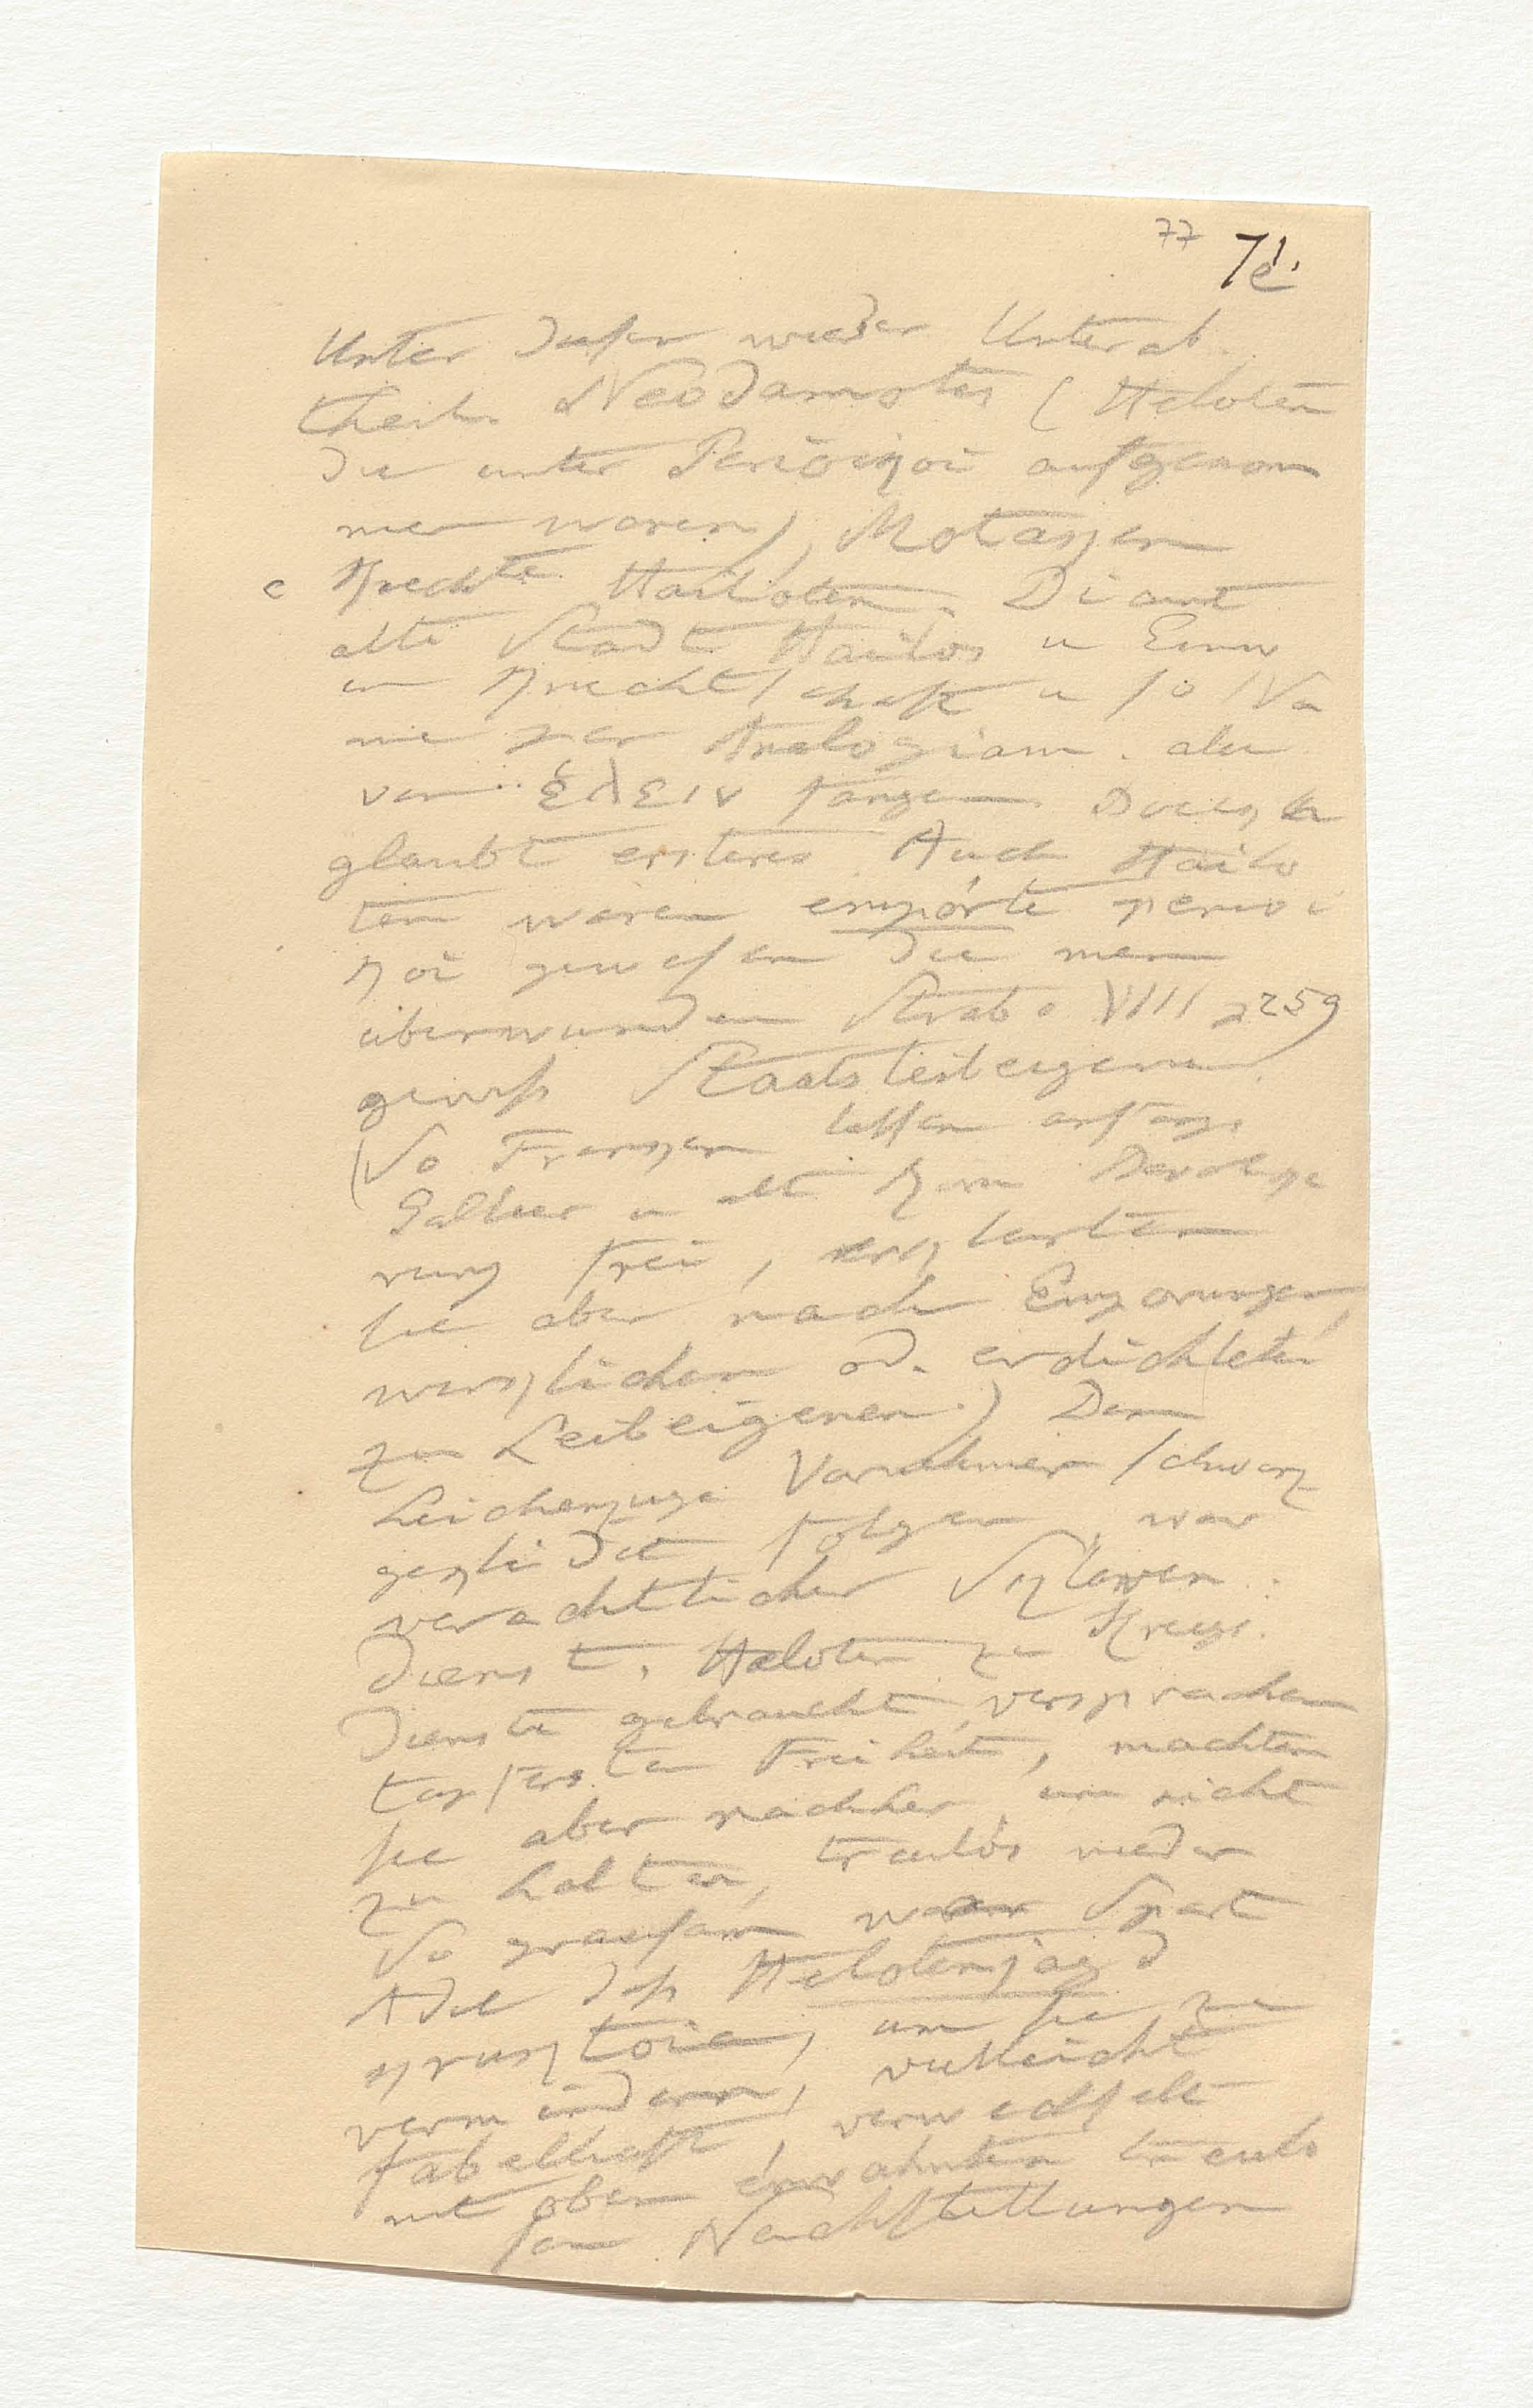 77 7e.
Unter diesen wieder Unterab
theil. Neodamotes (Heloten
die unter Perioikoi aufgenom
men waren), Motaken
c Knechte Hailoten. Di
alte Stadt Hailos u Einw
in Knechtschaft u so Na
me per Analogiam. aber
von ἑλειν fangen. Doch
glaubt ersteres Auch Hailo
ten waren empörte perioi
koi gewesen die man
überwunden Strabo VIII p 259
gewiß Staatsleibeigene
(So Franken lassen anfangs
Gallier u alte
rung frei, erklärten
sie aber nach Empörungen,
wirklichen od. erdichteten
zu Leibeigenen.) Dem
Leichenzuge Vornehmer schwarz
gekleidet folgen, war
verächtlicher Sklaven
dienst. Heloten zu Kriegs
dienste gebraucht, versprachen
tapfersten Freiheit, machten
sie aber nachher, um nicht
zu halten, treulos nieder
So grausam war Spart
Adel daß Helotenjagd
krypteia, um sie zu
vermindern, vielleicht
fabelhaft, verwechselt
mit oben erwähnten treulo
sen Nachstellungen